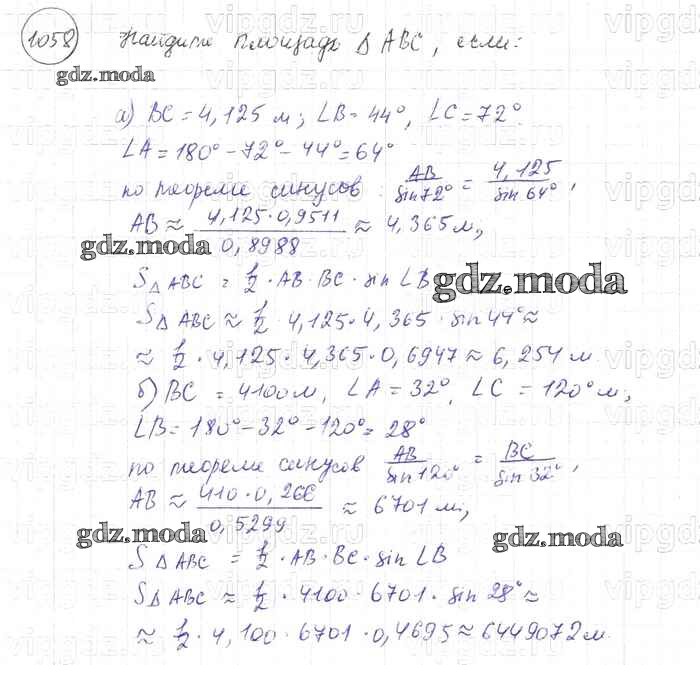 1058 Найдите площадь Δ ABC, если:
gdz.moda
а) BC = 4,125 м; ∠B = 44°, ∠C = 72°.
∠A = 180° - 72° - 44° = 64°
по теореме синусов: AB/sin72° = 4,125/sin 64°,
AB ≈ 4,125·0,9511/0,8988 ≈ 4,365 м;
gdz.moda
S Δ ABC = 1/2 · AB · BC · sin ∠B
gdz.moda
S Δ ABC ≈ 1/2 · 4,125 · 4,365 · sin 44° ≈
≈ 1/2 · 4,125 · 4,365 · 0,6947 ≈ 6,254 м.
б) BC = 4100 м, ∠A = 32°, ∠C = 120° м;
∠B = 180° - 32° - 120° = 28°
по теореме синусов AB/sin120° = BC/sin 32°,
AB ≈ 410·0,266/0,5299 ≈ 6701 м;
gdz.moda
gdz.moda
S Δ ABC = 1/2 · AB · BC · sin ∠B
S Δ ABC ≈ 1/2 · 4100 · 6701 · sin 28° ≈
≈ 1/2 · 4,100 · 6701 · 0,4695 ≈ 6449072 м.